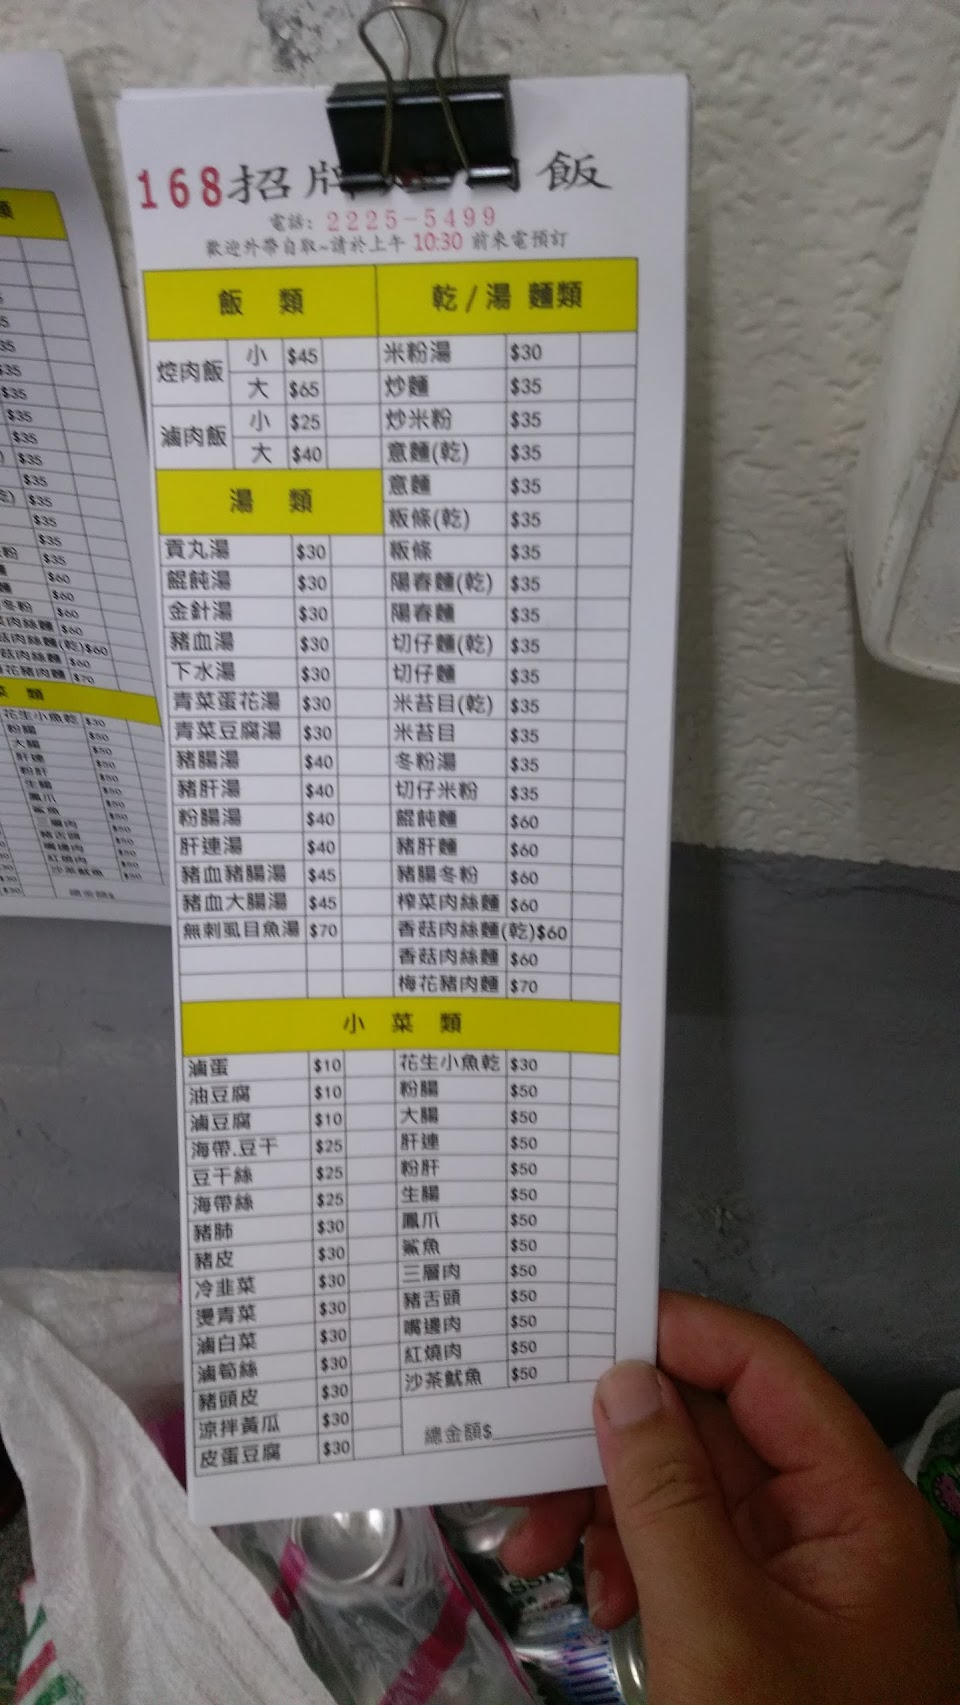 168招牌 飯
電話: 2225-5499
歡迎外帶自取~請於上午 10:30 前來電預訂
飯 類
焢肉飯 小 $45
大 $65
滷肉飯 小 $25
大 $40
湯 類
貢丸湯 $30
餛飩湯 $30
金針湯 $30
豬血湯 $30
下水湯 $30
青菜蛋花湯 $30
青菜豆腐湯 $30
豬腸湯 $40
豬肝湯 $40
粉腸湯 $40
肝連湯 $40
豬血豬腸湯 $45
豬血大腸湯 $45
無刺虱目魚湯 $70
乾/湯 麵類
米粉湯 $30
炒麵 $35
炒米粉 $35
意麵(乾) $35
意麵 $35
粄條(乾) $35
粄條 $35
陽春麵(乾) $35
陽春麵 $35
切仔麵(乾) $35
切仔麵 $35
米苔目(乾) $35
米苔目 $35
冬粉湯 $35
切仔米粉 $35
餛飩麵 $60
豬肝麵 $60
豬腸冬粉 $60
榨菜肉絲麵 $60
香菇肉絲麵(乾)$60
香菇肉絲麵 $60
梅花豬肉麵 $70
小 菜 類
滷蛋 $10
油豆腐 $10
滷豆腐 $10
海帶.豆干 $25
豆干絲 $25
海帶絲 $25
豬肺 $30
豬皮 $30
冷韭菜 $30
燙青菜 $30
滷白菜 $30
滷筍絲 $30
豬頭皮 $30
涼拌黃瓜 $30
皮蛋豆腐 $30
花生小魚乾 $30
粉腸 $50
大腸 $50
肝連 $50
粉肝 $50
生腸 $50
鳳爪 $50
鯊魚 $50
三層肉 $50
豬舌頭 $50
嘴邊肉 $50
紅燒肉 $50
沙茶魷魚 $50
總金額$